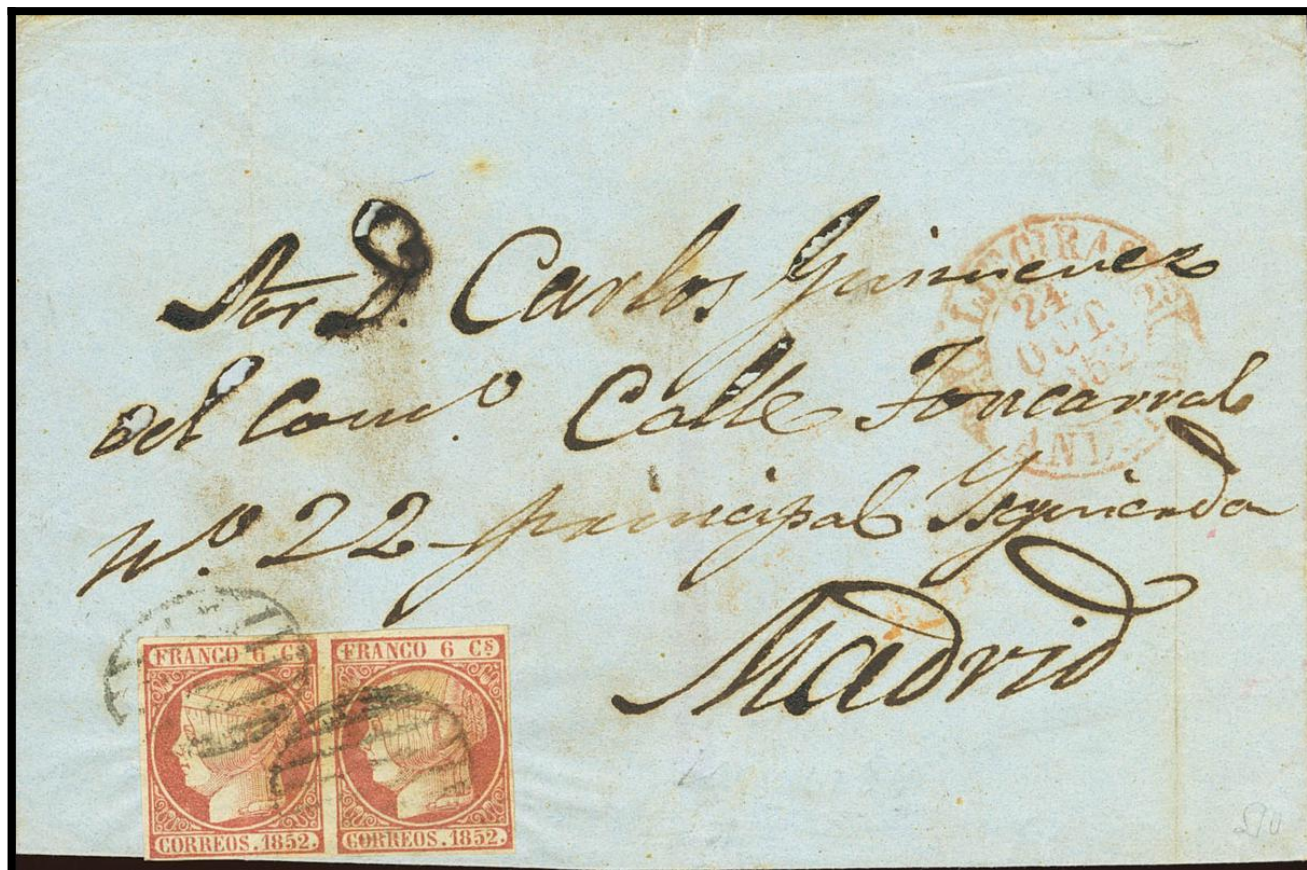 Sor D. Carlos Gimenez
del Com.o Calle Foncarral
N.o 22 principal Isquierda
Madrid
ALGECIRAS
24
OCT.
1852
FRANCO 6 Cs
CORREOS. 1852.
FRANCO 6 Cs
CORREOS. 1852.